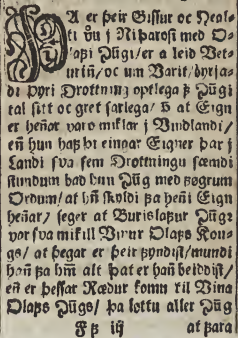 NU er þeir Gissur oc Heal-
ti vu i Niþarosi med O-
lafi Kūgi/ er a leid Vet-
urin̄/ oc um Varit/ byrja-
di Þyri Drottning optlega f Kūgi
tal sitt oc gret sarlega/ þ at Eign
er hen̄ar voro miklar j Vindlandi/
en̄ hun hafþi eingar Eigner þar j
Landi sva sem Drottningu sæmdi
stundum bad hun Kūg med føgrum
Ordum/ at hn̄ skyldi fa hen̄i Eign
hen̄ar/ seger at Burislafur Kūgr
vor sva mikill Vinur Olafs Kon-
gs/ at þegar er þeir fyndist/ mundi
han̄ fa hn̄i alt þat er han̄ beiddist/
en̄ er þessar Rædur komu til Vina
Olafs Kūgs/ þa lottu aller Kūg
iij at fara